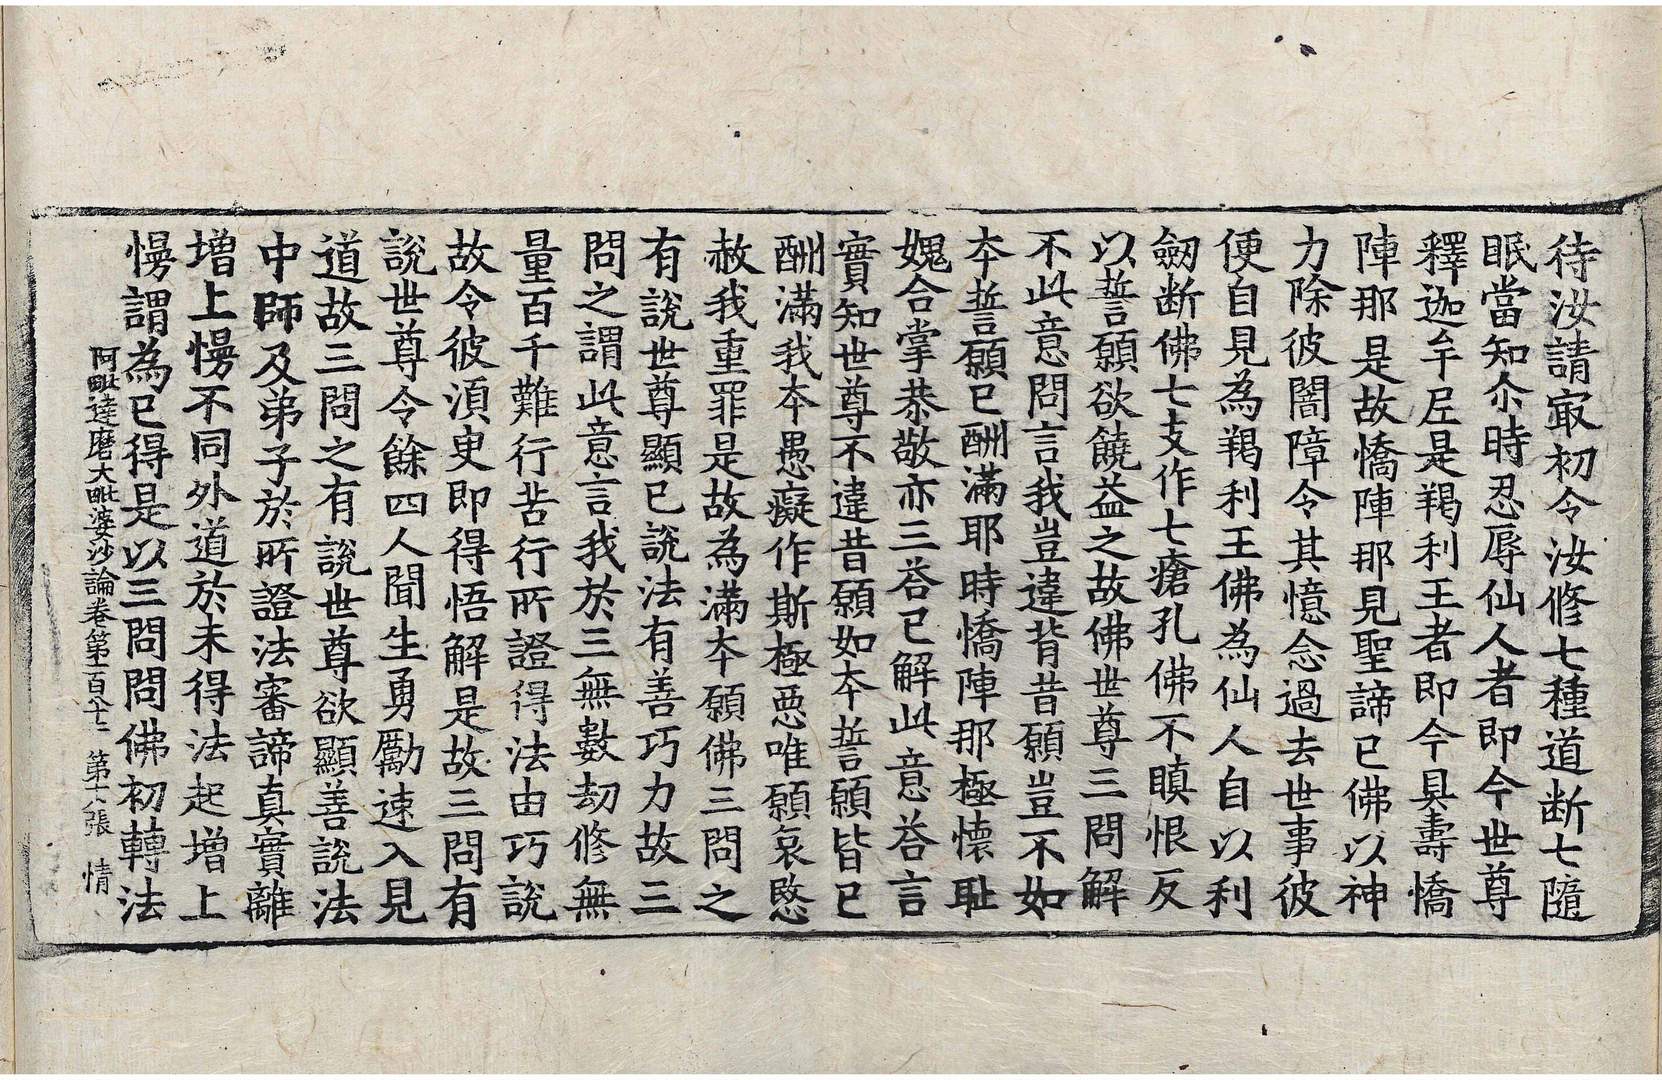 待汝請㝡初令汝修七種道断七隨
眠當知尒時忍辱仙人者即今世尊
釋迦牟𡰱是羯利王者即今具壽憍
陣那是故憍陣那見聖諦已佛以神
力除彼闇障令其憶念過去世事彼
便自見為羯利王佛為仙人自以利
劒断佛七支作七瘡孔佛不瞋恨反
以誓願欲饒益之故佛世尊三問解
不此意問言我豈違背昔願豈不如
夲誓願已酬滿耶時憍陣那極懷耻
媿合掌恭敬亦三荅已解此意荅言
實知世尊不違昔願如夲誓願皆已
酬滿我夲愚癡作斯極悪唯願哀愍
赦我重罪是故為滿夲願佛三問之
有說世尊顯已說法有善巧力故三
問之謂此意言我於三無數劫修無
量百千難行苦行所證得法由巧說
故令彼湏臾即得悟解是故三問有
說世尊令餘四人聞生勇勵速入見
道故三問之有說世尊欲顯善說法
中師及弟子於所證法審諦真實離
增上慢不同外道於未得法起增上
慢謂為已得是以三問問佛初轉法
阿毗達磨大毗婆沙論卷第一百八十二 第十八張 情